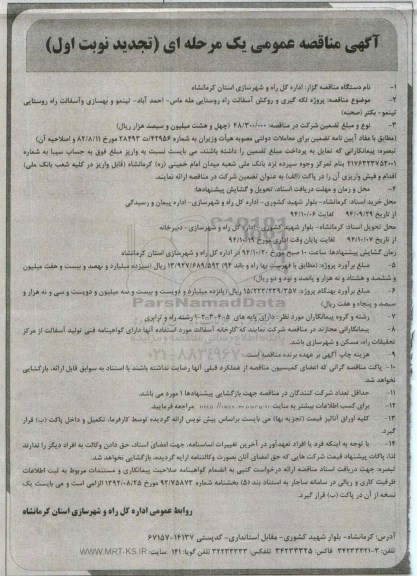 آگهی مناقصه عمومی یک مرحله ای (تجدید نوبت اول)
۱- نام دستگاه مناقصه گزار: اداره کل راه و شهرسازی استان کرمانشاه
۲- موضوع مناقصه: پروژه لکه گیری و روکش آسفالت راه روستایی مله ماس- احمد آباد- نیتمو و بهسازی وآسفالت راه روستایی
نیتمو- بکتر (صحنه)
۳- نوع و مبلغ تضمین شرکت در مناقصه: ۴۸/۳۰۰/۰۰۰ (چهل و هشت میلیون و سیصد هزار ریال)
(مطابق با مفاد آیین نامه تضمین برای معاملات دولتی مصوبه هیأت وزیران به شماره ۴۲۹۵۶/ت ۲۸۴۹۳ مورخ ۸۲/۸/۱۱ و اصلاحیه آن)
تبصره: پیمانکارانی که تمایل به پرداخت مبلغ تضمین را داشته باشند، می بایست نسبت به واریز مبلغ فوق به حساب سیبا به شماره
۲۱۷۶۴۴۲۷۵۲۰۰۱ بنام تمرکز وجوه سپرده نزد بانک ملی شعبه میدان امام خمینی (ره) کرمانشاه (قابل واریز در کلیه شعب بانک ملی)
اقدام و فیش واریزی آن را در پاکت (الف) به عنوان تضمین شرکت در مناقصه ارائه نمایند.
۴- محل و زمان و مهلت دریافت اسناد، تحویل و گشایش پیشنهادها:
محل خرید اسناد: کرمانشاه- بلوار شهید کشوری- اداره کل راه و شهرسازی- اداره پیمان و رسیدگی
از تاریخ ۹۴/۰۹/۲۹ لغایت ۹۴/۱۰/۰۶
محل تحویل اسناد: کرمانشاه- بلوار شهید کشوری- اداره کل راه و شهرسازی- دبیرخانه
از تاریخ ۹۴/۱۰/۰۷ لغایت پایان وقت اداری مورخ ۹۴/۱۰/۱۹
زمان گشایش پیشنهادها: ساعت ۱۰ صبح مورخ ۹۴/۱۰/۲۰ در اداره کل راه و شهرسازی استان کرمانشاه
۵- مبلغ برآورد پروژه: (مطابق با فهرست بها راه و باند ۹۴) ۱۳/۹۲۷/۶۸۹/۵۹۲ ریال (سیزده میلیارد و نهصد و بیست و هفت میلیون
و ششصد و هشتاد و نه هزار و پانصد و نود و دو ریال)
۶- مبلغ برآورد بهنگام پروژه: ۱۵/۲۲۳/۲۳۹/۳۵۷ ریال (پانزده میلیارد و دویست و بیست و سه میلیون و دویست و سی و نه هزار و
سیصد و پنجاه و هفت ریال)
۷- رشته و گروه پیمانکاران مورد نظر: دارای پایه های ۵-۴-۳-۲-۱ رشته راه و ترابری
۸- پیمانکارانی مجازند در مناقصه شرکت نمایند که کارخانه آسفالت مورد استفاده آنها دارای گواهینامه فنی تولید آسفالت از مرکز
تحقیقات راه، مسکن و شهرسازی باشد.
۹- هزینه چاپ آگهی بر عهده برنده مناقصه است.
۱۰- پاکت مناقصه گرانی که اعضای کمیسیون مناقصه از عملکرد قبلی آنها رضایت نداشته باشند با استناد به سوابق قابل ارائه، بازگشایی
نخواهد شد.
۱۱- حداقل تعداد شرکت کنندگان در مناقصه جهت بازگشایی پیشنهادها ۱ مورد می باشد.
۱۲- برای کسب اطلاعات بیشتر به سایت مراجعه فرمایید.
۱۳- کلیه اوراق آنالیز قیمت (تجزیه بها) می بایست براساس پیش نویس ارائه گردیده توسط کارفرما، تکمیل و داخل پاکت (ب) قرار
گیرد.
۱۴- با توجه به اینکه فرد یا افراد تعهدآور در آخرین تغییرات اساسنامه، جهت امضای اسناد، حق دادن وکالت به افراد دیگر را ندارند
لذا، پاکات پیشنهاد قیمت شرکت هایی که حق امضای آنان بصورت وکالتنامه ارایه گردیده، بازگشایی نخواهد شد.
تبصره: جهت دریافت اسناد مناقصه ارائه درخواست کتبی به انضمام گواهینامه صلاحیت پیمانکاری و مستندات مربوط به ثبت اطلاعات
ظرفیت کاری و ریالی در سامانه ساجار به استناد بند (۵) بخشنامه شماره ۹۲/۷۵۸۷۳ مورخ ۱۳۹۲/۰۸/۲۵ الزامی است و می بایست یک
نسخه از آن در پاکت (ب) قرار گیرد.
روابط عمومی اداره کل راه و شهرسازی استان کرمانشاه
آدرس: کرمانشاه- بلوار شهید کشوری- مقابل استانداری- کدپستی ۱۴۱۳۷-۶۷۱۵۷
تلفن: ۳-۳۴۲۳۳۳۲۱ فاکس: ۳۴۲۳۳۳۲۵ تلفکس: ۳۴۲۳۳۳۳۳ تلفن گویا: ۱۴۱ سایت: WWW.MRT-KS.IR
ParsNamadData